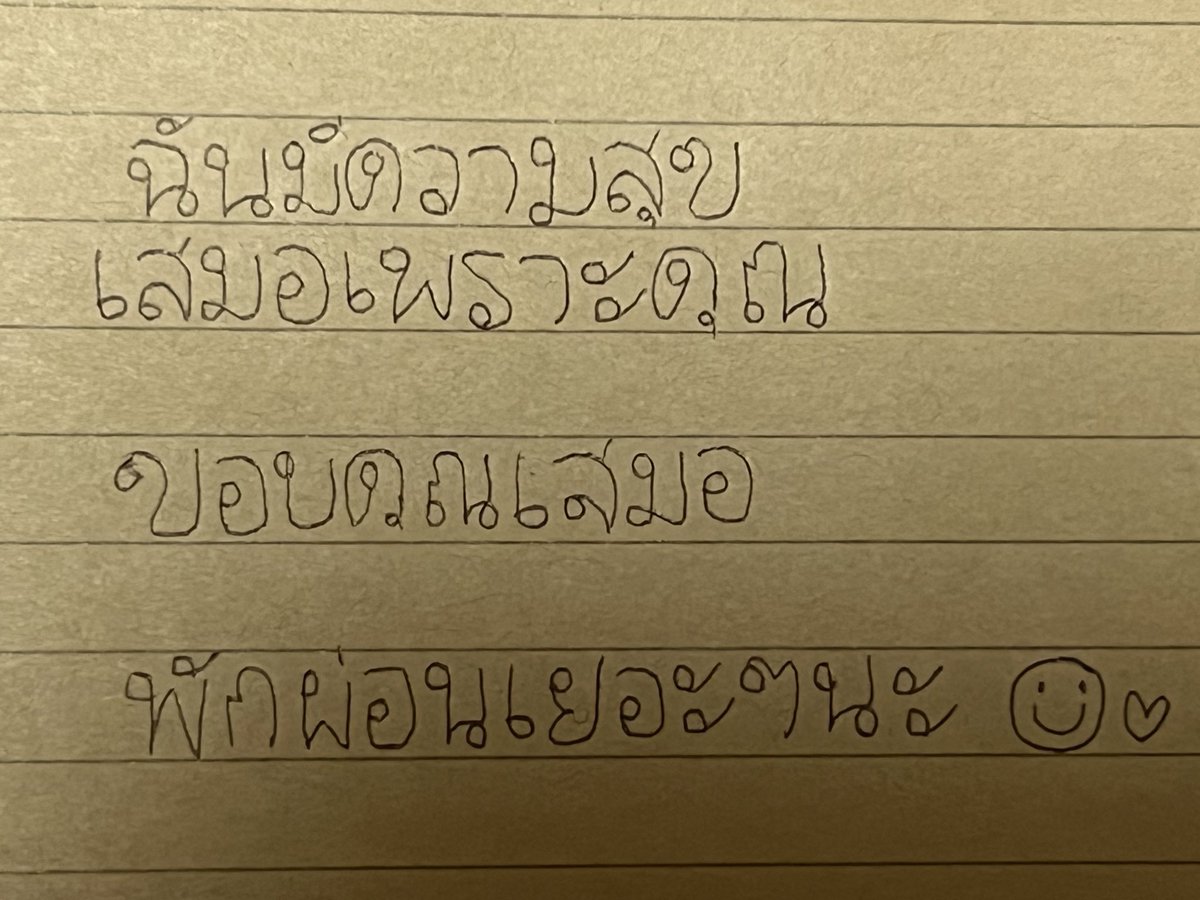 ฉันมีความสุข
เสมอเพราะคุณ
ขอบคุณเสมอ
พักผ่อนเยอะๆนะ